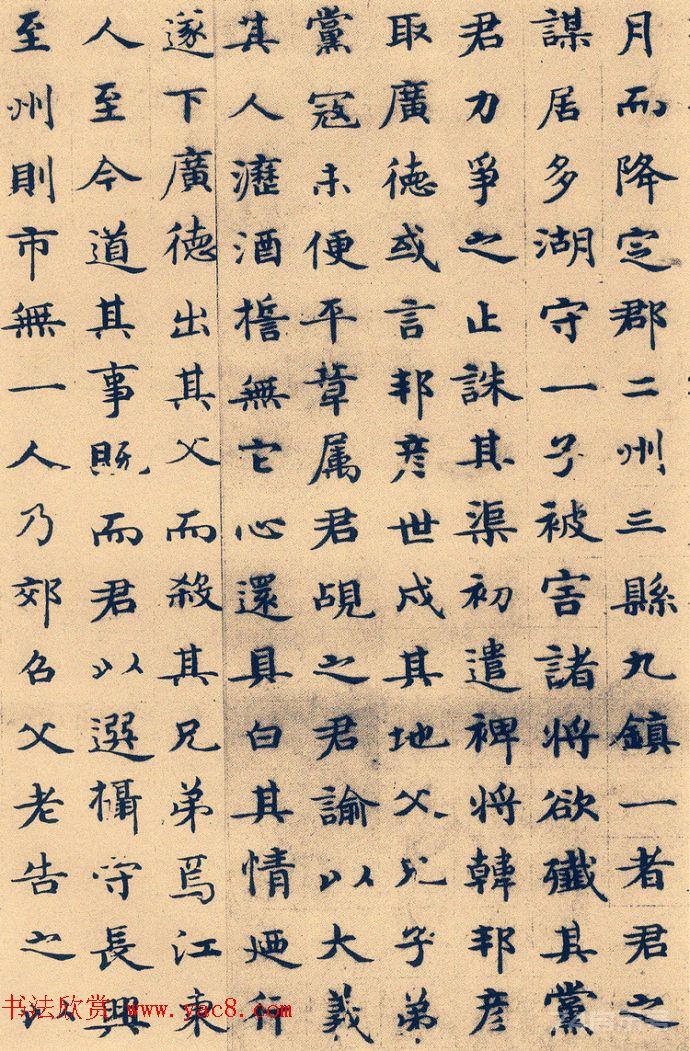 月而降定郡二州三縣九鎮一者君之
謀居多湖守一子被害諸將欲殱其黨
君力爭之止誅其渠初遣裨將韓邦彦
取廣徳或言邦彦世戍其地父兄子弟
黨寇未便平章属君覘之君諭以大義
其人瀝酒誓無它心還具白其情廼行
遂下廣徳出其父而殺其兄弟焉江東
人至今道其事既而君以選攝守長興
至州則市無一人乃郊召父老告之以
书法欣赏 www.yac8.com